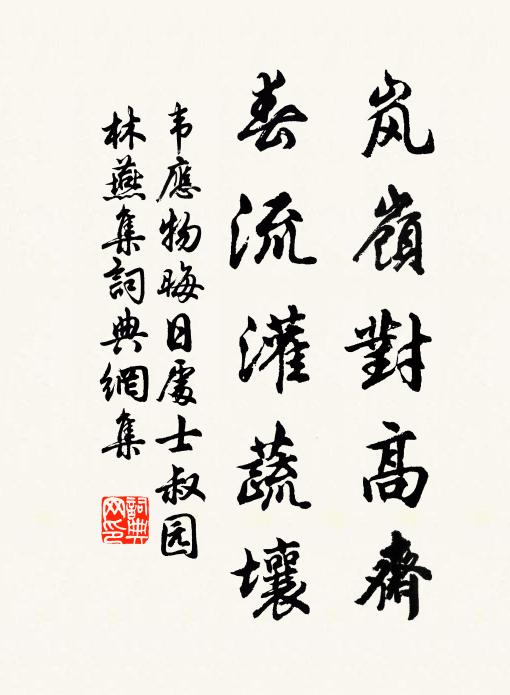 岚嶺對高齋
春流灌蔬壤
韦應物晦日處士叔园
林燕集詞典網集
詞典
网印